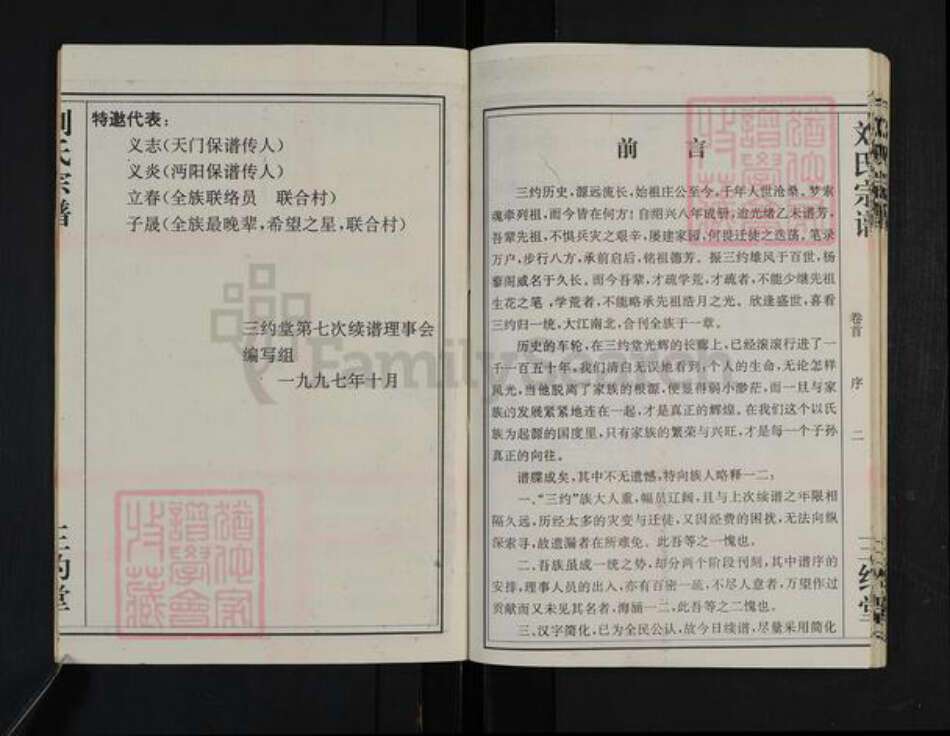 刘氏宗谱
三约堂
特邀代表：
义志（天门保谱传人）
义炎（沔阳保谱传人）
立春（全族联络员　联合村）
子晟（全族最晚辈，希望之星，联合村）
三约堂第七次续谱理事会
编写组
一九九七年十月
前　言
三约历史，源远流长，始祖庄公至今，千年人世沧桑。梦索
魂牵列祖，而今皆在何方！自绍兴八年成册，迨光绪乙未谱芳，
吾辈先祖，不惧兵灾之艰辛，屡建家园，何畏迁徙之迭荡。笔录
万户，步行八方，承前启后，铭祖德芳。振三约雄风于百世，杨
藜阁威名于久长。而今吾辈，才疏学荒，才疏者，不能少继先祖
生花之笔，学荒者，不能略承先祖皓月之光。欣逢盛世，喜看
三约归一统，大江南北，合刊全族于一章。
历史的车轮，在三约堂光辉的长廊上，已经滚滚行进了一
千一百五十年，我们清白无误地看到：个人的生命，无论怎样
风光，当他脱离了家族的根源，便显得弱小渺茫，而一旦与家
族的发展紧紧地连在一起，才是真正的辉煌。在我们这个以氏
族为起源的国度里，只有家族的繁荣与兴旺，才是每一个子孙
真正的向往。
谱牒成矣，其中不无遗憾，特向族人略释一二：
一、“三约”族大人重，幅员辽阔，且与上次续谱之年限相
隔久远，历经太多的灾变与迁徙，又因经费的困扰，无法向纵
深索寻，故遗漏者在所难免。此吾等之一愧也。
二、吾族虽成一统之势，却分两个阶段刊刻，其中谱序的
安排，理事人员的出入，亦有百密一疏，不尽人意者，万望作过
贡献而又未见其名者，海涵一二，此吾等之二愧也。
三、汉字简化，已为全民公认，故今日续谱，尽量采用简化
刘氏宗谱
卷首
序
二
三约堂
FamilySearch